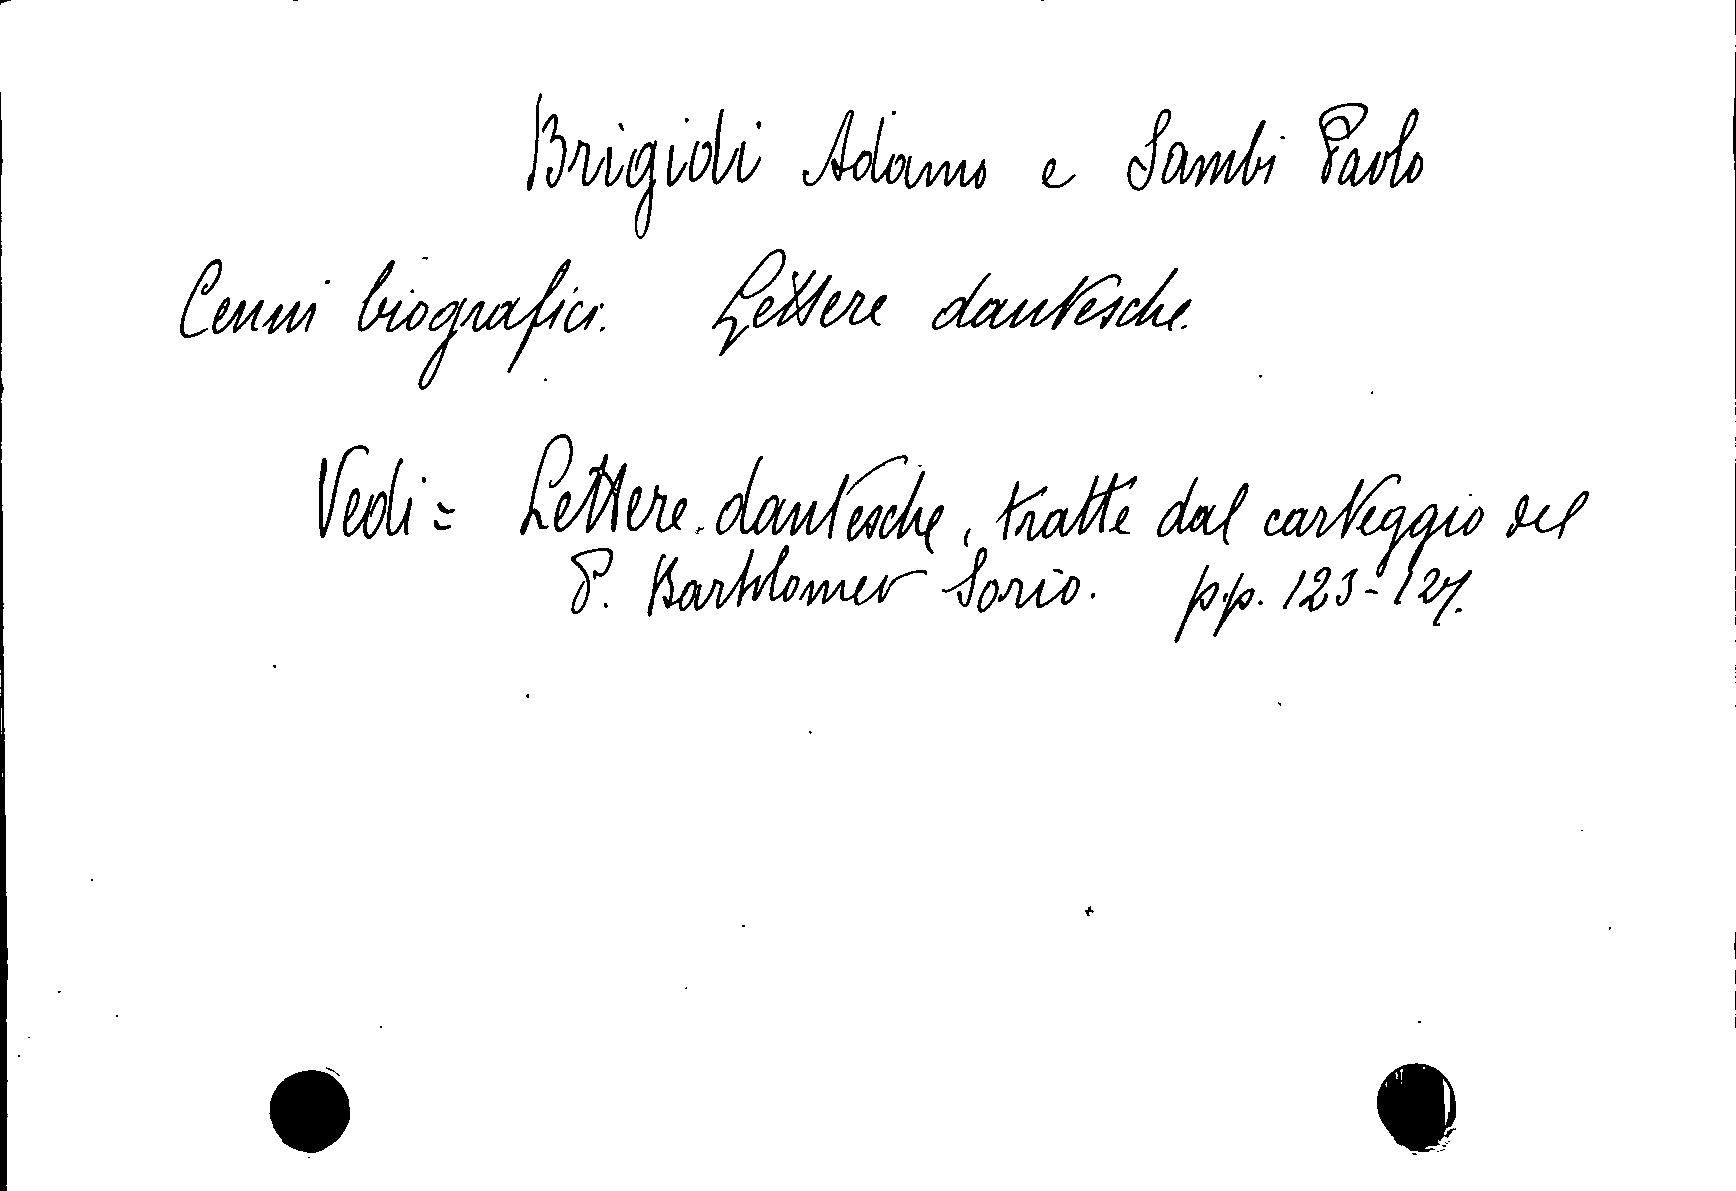 Brigidi Adamo e Sambi Paolo
Cenni biografici. Lettere dantesche.
Vedi = Lettere dantesche, tratte dal carteggio del
P. Bartolomeo Sorio. pp. 123-127.